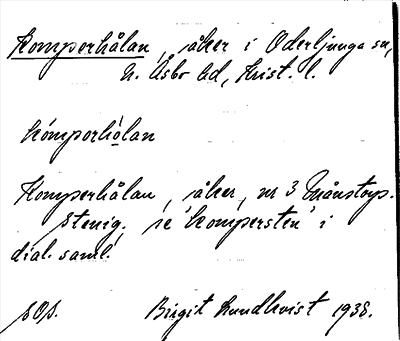 Komperhålan, åker i Oderljunga sn,
N. Åsbo hd, Krist. l.
kòmporhòlan
Komperhålan, åker, nr 3 Månstorp.
Stenig. se 'kompersten' i
dial. saml.
sOs. Birgit Lundkvist 1938.